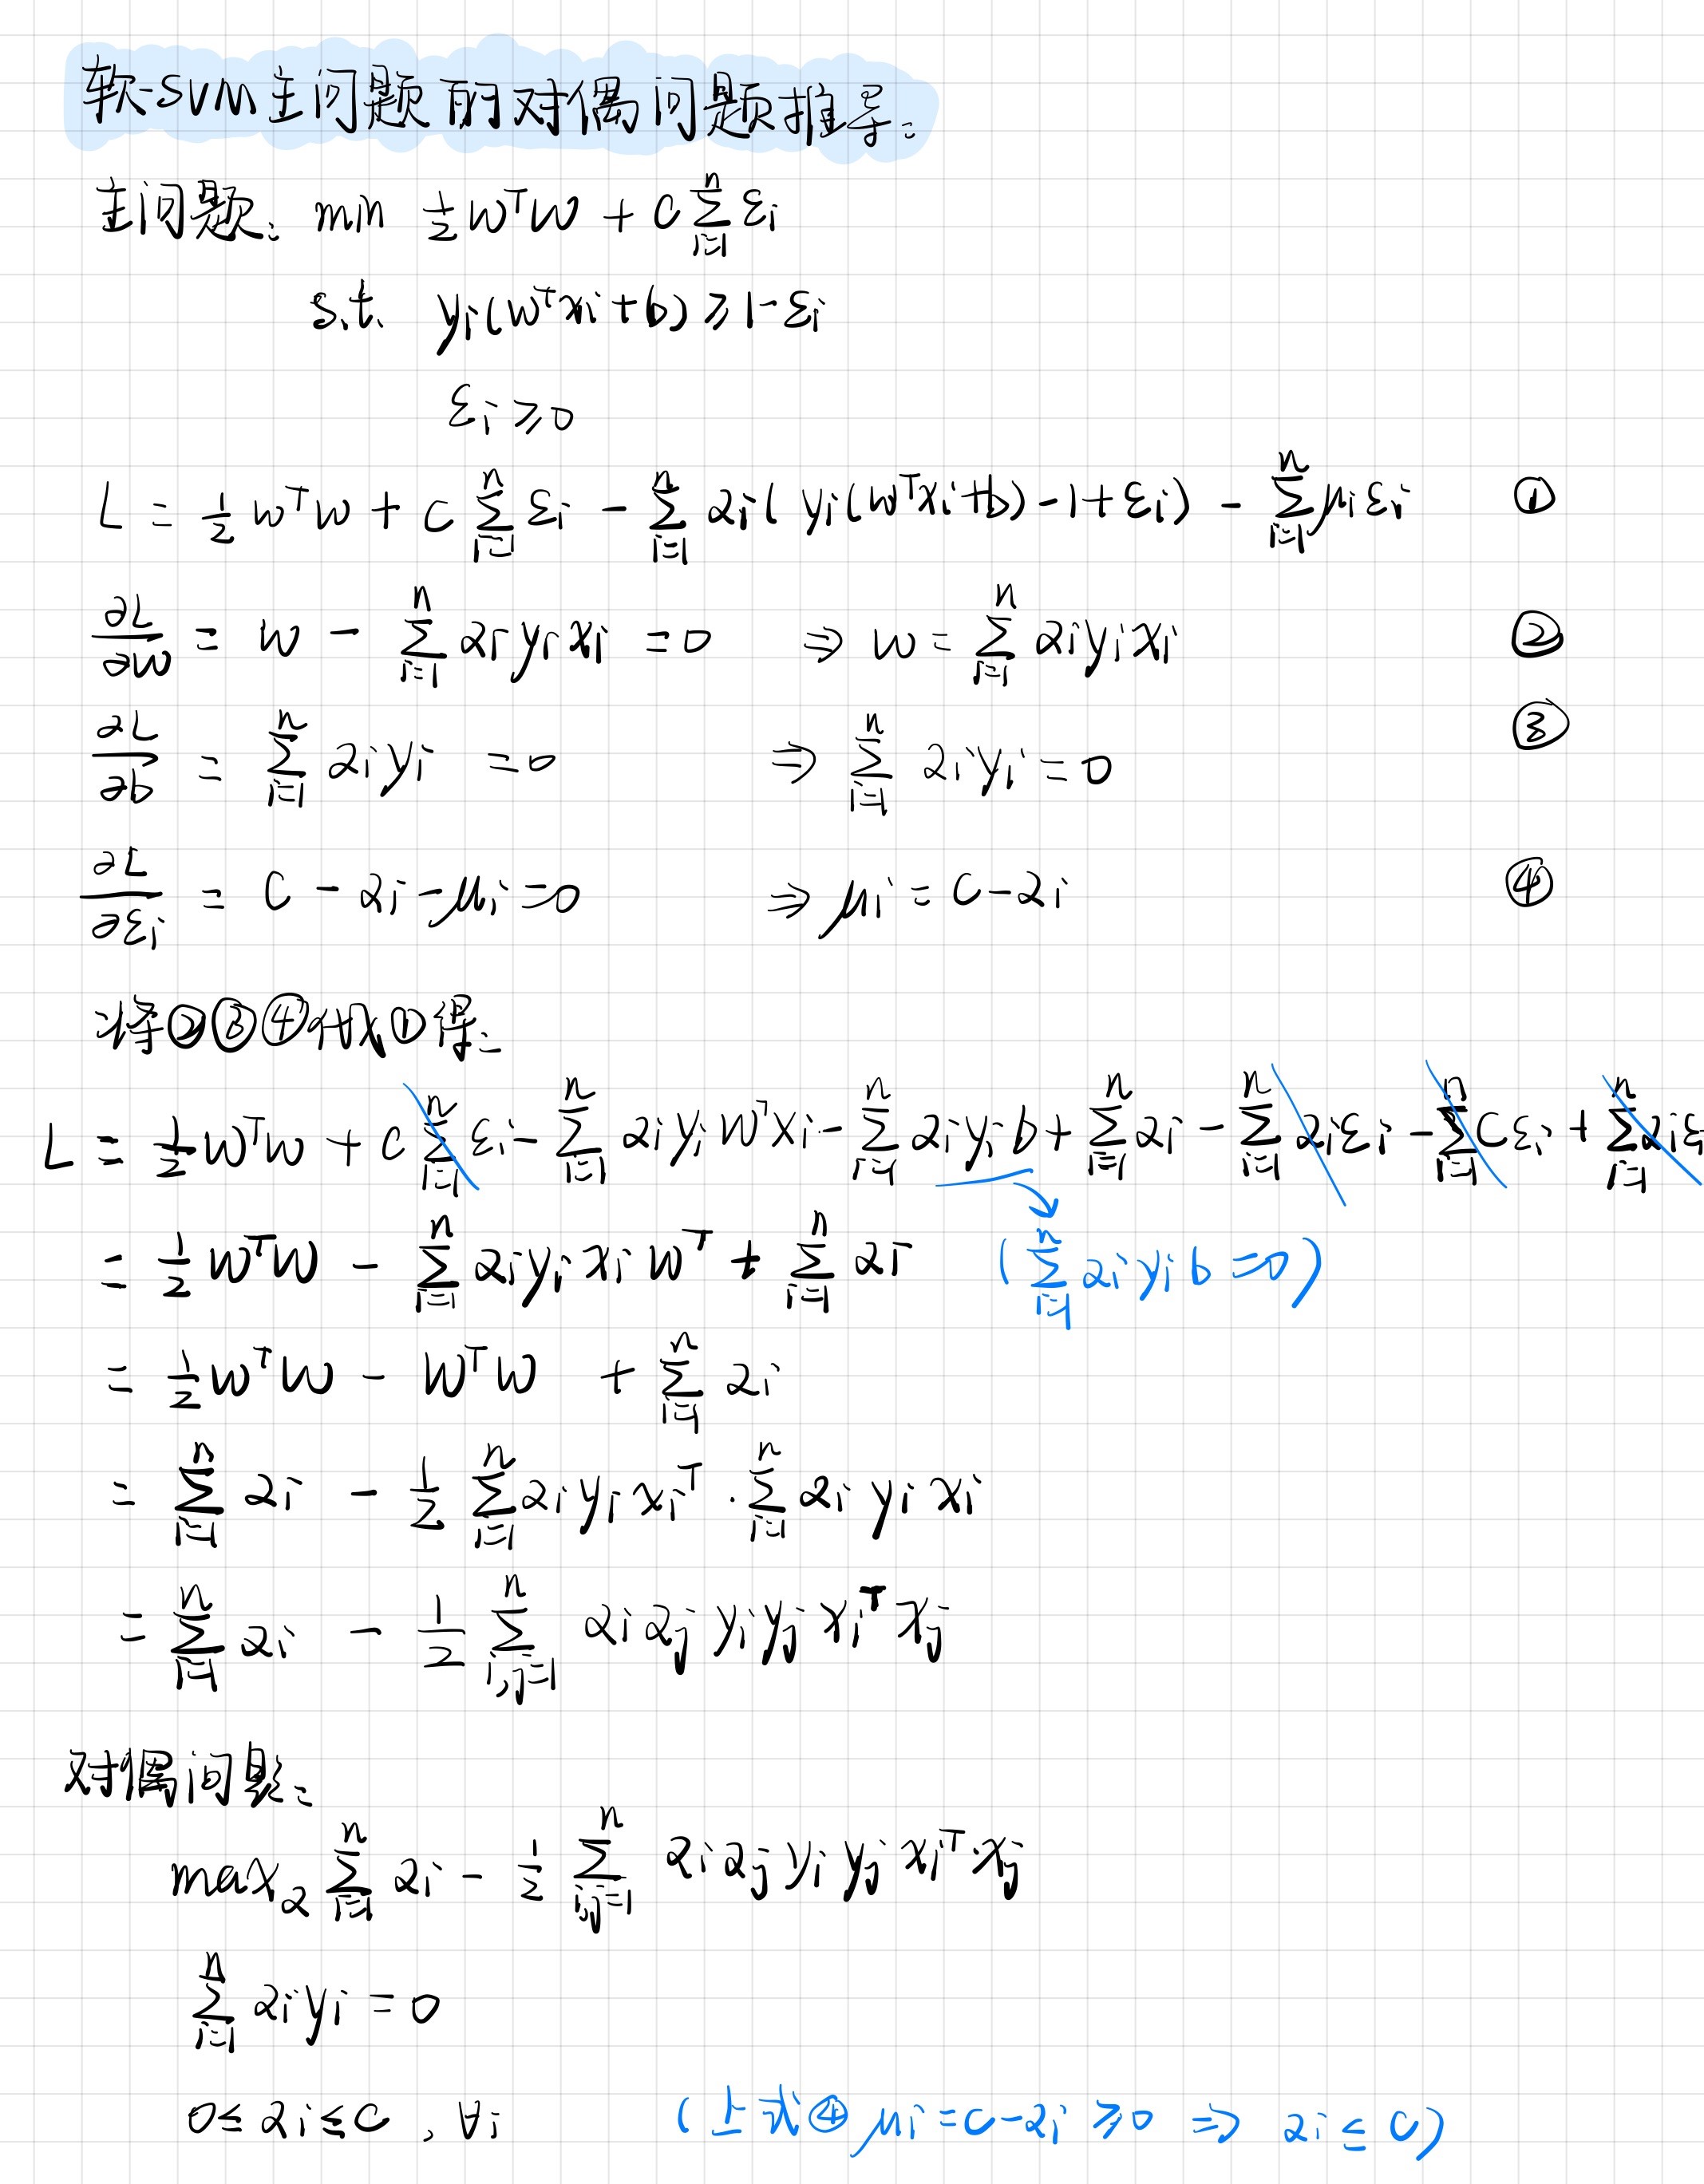 软SVM主问题的对偶问题推导：
主问题：min ½wᵀw + C∑ᵢ₌₁ⁿ εᵢ
s.t. yᵢ(wᵀxᵢ+b) ≥ 1-εᵢ
εᵢ ≥ 0
L = ½wᵀw + C∑ᵢ₌₁ⁿ εᵢ - ∑ᵢ₌₁ⁿ αᵢ( yᵢ(wᵀxᵢ+b) -1+εᵢ) - ∑ᵢ₌₁ⁿ μᵢεᵢ ①
∂L/∂w = w - ∑ᵢ₌₁ⁿ αᵢyᵢxᵢ = 0 ⇒ w = ∑ᵢ₌₁ⁿ αᵢyᵢxᵢ ②
∂L/∂b = ∑ᵢ₌₁ⁿ αᵢyᵢ = 0 ⇒ ∑ᵢ₌₁ⁿ αᵢyᵢ = 0 ③
∂L/∂εᵢ = C - αᵢ - μᵢ = 0 ⇒ μᵢ = C - αᵢ ④
将②③④代入①得：
L = ½wᵀw + C∑ᵢ₌₁ⁿ εᵢ - ∑ᵢ₌₁ⁿ αᵢyᵢwᵀxᵢ - ∑ᵢ₌₁ⁿ αᵢyᵢb + ∑ᵢ₌₁ⁿ αᵢ - ∑ᵢ₌₁ⁿ αᵢεᵢ - ∑ᵢ₌₁ⁿ Cεᵢ + ∑ᵢ₌₁ⁿ αᵢε
= ½wᵀw - ∑ᵢ₌₁ⁿ αᵢyᵢxᵢwᵀ + ∑ᵢ₌₁ⁿ αᵢ (∑ᵢ₌₁ⁿ αᵢyᵢb = 0)
= ½wᵀw - wᵀw + ∑ᵢ₌₁ⁿ αᵢ
= ∑ᵢ₌₁ⁿ αᵢ - ½∑ᵢ₌₁ⁿ αᵢyᵢxᵢᵀ · ∑ᵢ₌₁ⁿ αᵢyᵢxᵢ
= ∑ᵢ₌₁ⁿ αᵢ - ½∑ᵢ,ⱼ₌₁ⁿ αᵢαⱼyᵢyⱼxᵢᵀxⱼ
对偶问题：
max_α ∑ᵢ₌₁ⁿ αᵢ - ½∑ᵢ,ⱼ₌₁ⁿ αᵢαⱼyᵢyⱼxᵢᵀ·xⱼ
∑ᵢ₌₁ⁿ αᵢyᵢ = 0
0 ≤ αᵢ ≤ C , ∀i (上式④ μᵢ = C - αᵢ ≥ 0 ⇒ αᵢ ≤ C)